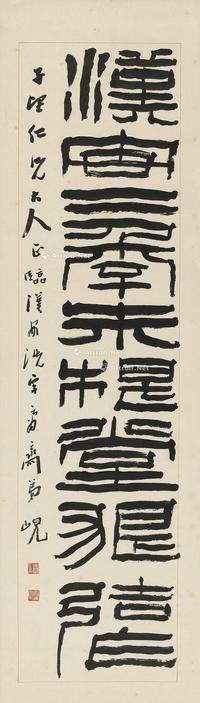 漢安三年朱提堂狼造
仁兄大人正臨漢洗字庸齋弟峴